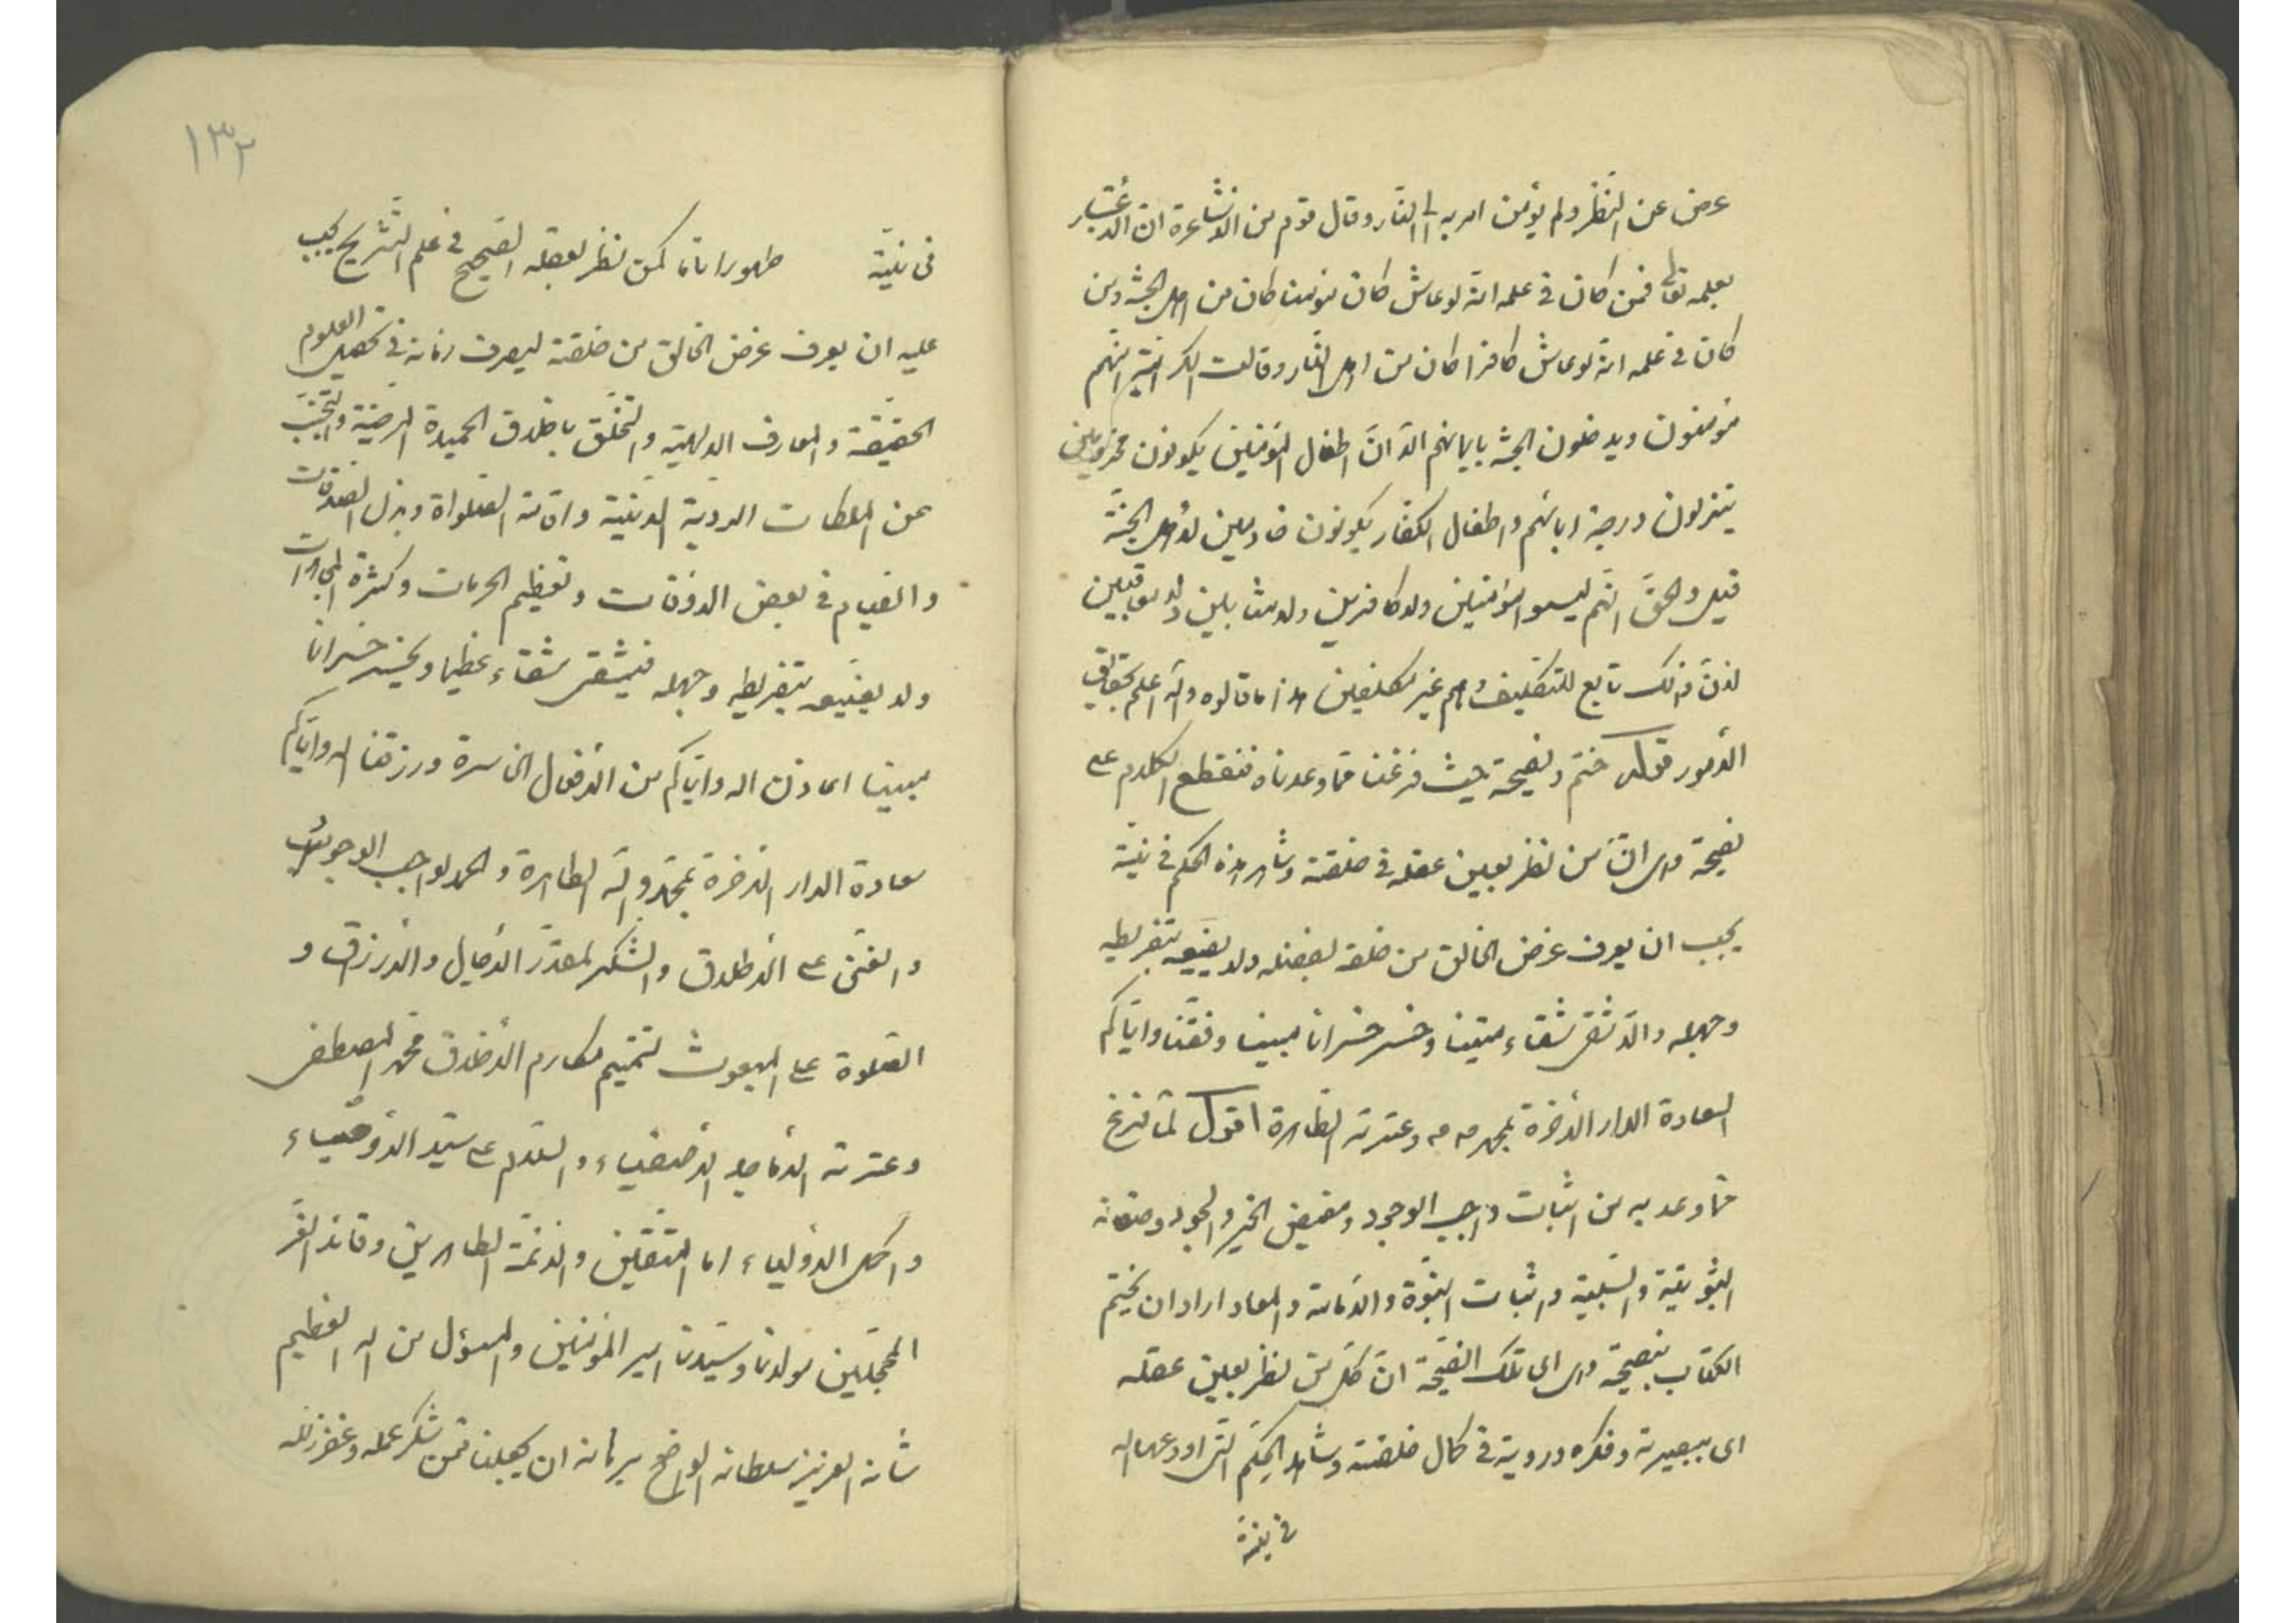 عرض عن النظر ولم يؤمن امر به الى النار وقال قوم من الاشاعرة ان الاعتبار
بعلمه تعالى فمن كان فى علمه انه لو عاش كان مؤمنا كان من اهل الجنة ومن
كان فى علمه انه لو عاش كافرا كان من اهل النار وقالت الكرامية انهم
مؤمنون ويدخلون الجنة بايمانهم الا ان اطفال المؤمنين يكونون
ينزلون درجة ابائهم واطفال الكفار يكونون خادمين لاهل الجنة
قيل والحق انهم ليسوا مؤمنين ولا كافرين ولا مثابين ولا معاقبين
لان ذلك تابع للتكليف وهم غير مكلفين هذا ما قالوه والله اعلم بحقايق
الامور قوله ختم ونصيحة حيث فرغنا مما وعدناه فنقطع الكلام على
نصيحة وهى ان من نظر بعين عقله فى خلقته وشاهد هذه الحكم فى بنيته
يجب ان يعرف غرض الخالق من خلقه بفضله ولا يضيعه بتفريطه
وجهله والا شقى شقاء متينا وخسر خسرانا مبينا وفقنا واياكم
السعادة الدار الاخرة بمحمد وعترته الطاهرة اقول لما فرغ
مما وعد به من اثبات واجب الوجود ومفيض الخير والجود وصفاته
الثبوتية والسلبية واثبات النبوة والامامة والمعاد اراد ان يختم
الكتاب بنصيحة وهى اى تلك النصيحة ان كل من نظر بعين عقله
اى ببصيرته وفكره ورويته فى كمال خلقته وشاهد الحكم التى اودعها الله
فى بنيته
١٣٢
فى بنيته ظهورا تاما كمن نظر بعقله الصحيح فى علم التشريح يجب
عليه ان يعرف غرض الخالق من خلقته ليصرف زمانه فى تحصيل العلوم
الحقيقة والمعارف الالهية والتخلق باخلاق الحميدة المرضية والتجنب
عن الملكات الردية الدنية واقامة الصلواة وبذل الصدقات
والقيام فى بعض الاوقات وتعظيم الحرمات وكثرة
ولا يضيعه بتفريطه وجهله فيشقى شقاء عظيما ويخسر خسرانا
مبينا اعاذنا الله واياكم من الافعال الخاسرة ورزقنا الله واياكم
سعادة الدار الاخرة بمحمد وآله الطاهرة والحمد لواجب الوجود
والغنى على الاطلاق والشكر لمقدر الاجال والارزاق و
الصلوة على المبعوث لتتميم مكارم الاخلاق محمد المصطفى
وعترته الاماجد الاصفياء والسلام على سيد الاوصياء
واكمل الاولياء امام المتقين والائمة الطاهرين وقائد الغر
المحجلين مولانا وسيدنا امير المؤمنين والمسؤل من الله العظيم
شانه العزيز سلطانه الواضح برهانه ان يجعلنا ممن شكر عمله وغفر زلله